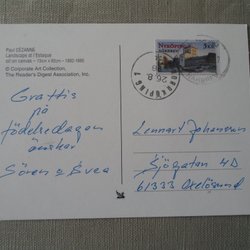 Paul CÉZANNE
Landscape at l'Estaque
oil on canvas – 73cm x 92cm – 1882-1883
© Corporate Art Collection,
The Reader's Digest Association, Inc.
Grattis
på
födelsedagen
önskar
Sören & Svea
NORRKÖPING
26.8
Lennart Johansson
Sjögatan 4D
61333 Oxelösund